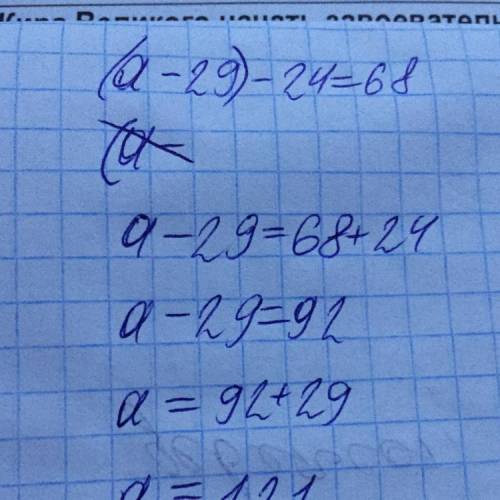 Кира Великого начать завоеватель
(a - 29) - 24 = 68
(a -
a - 29 = 68 + 24
a - 29 = 92
a = 92 + 29
a = 121